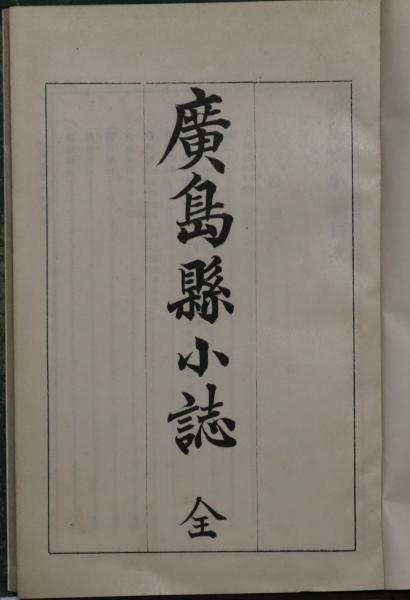 廣島縣小誌 全